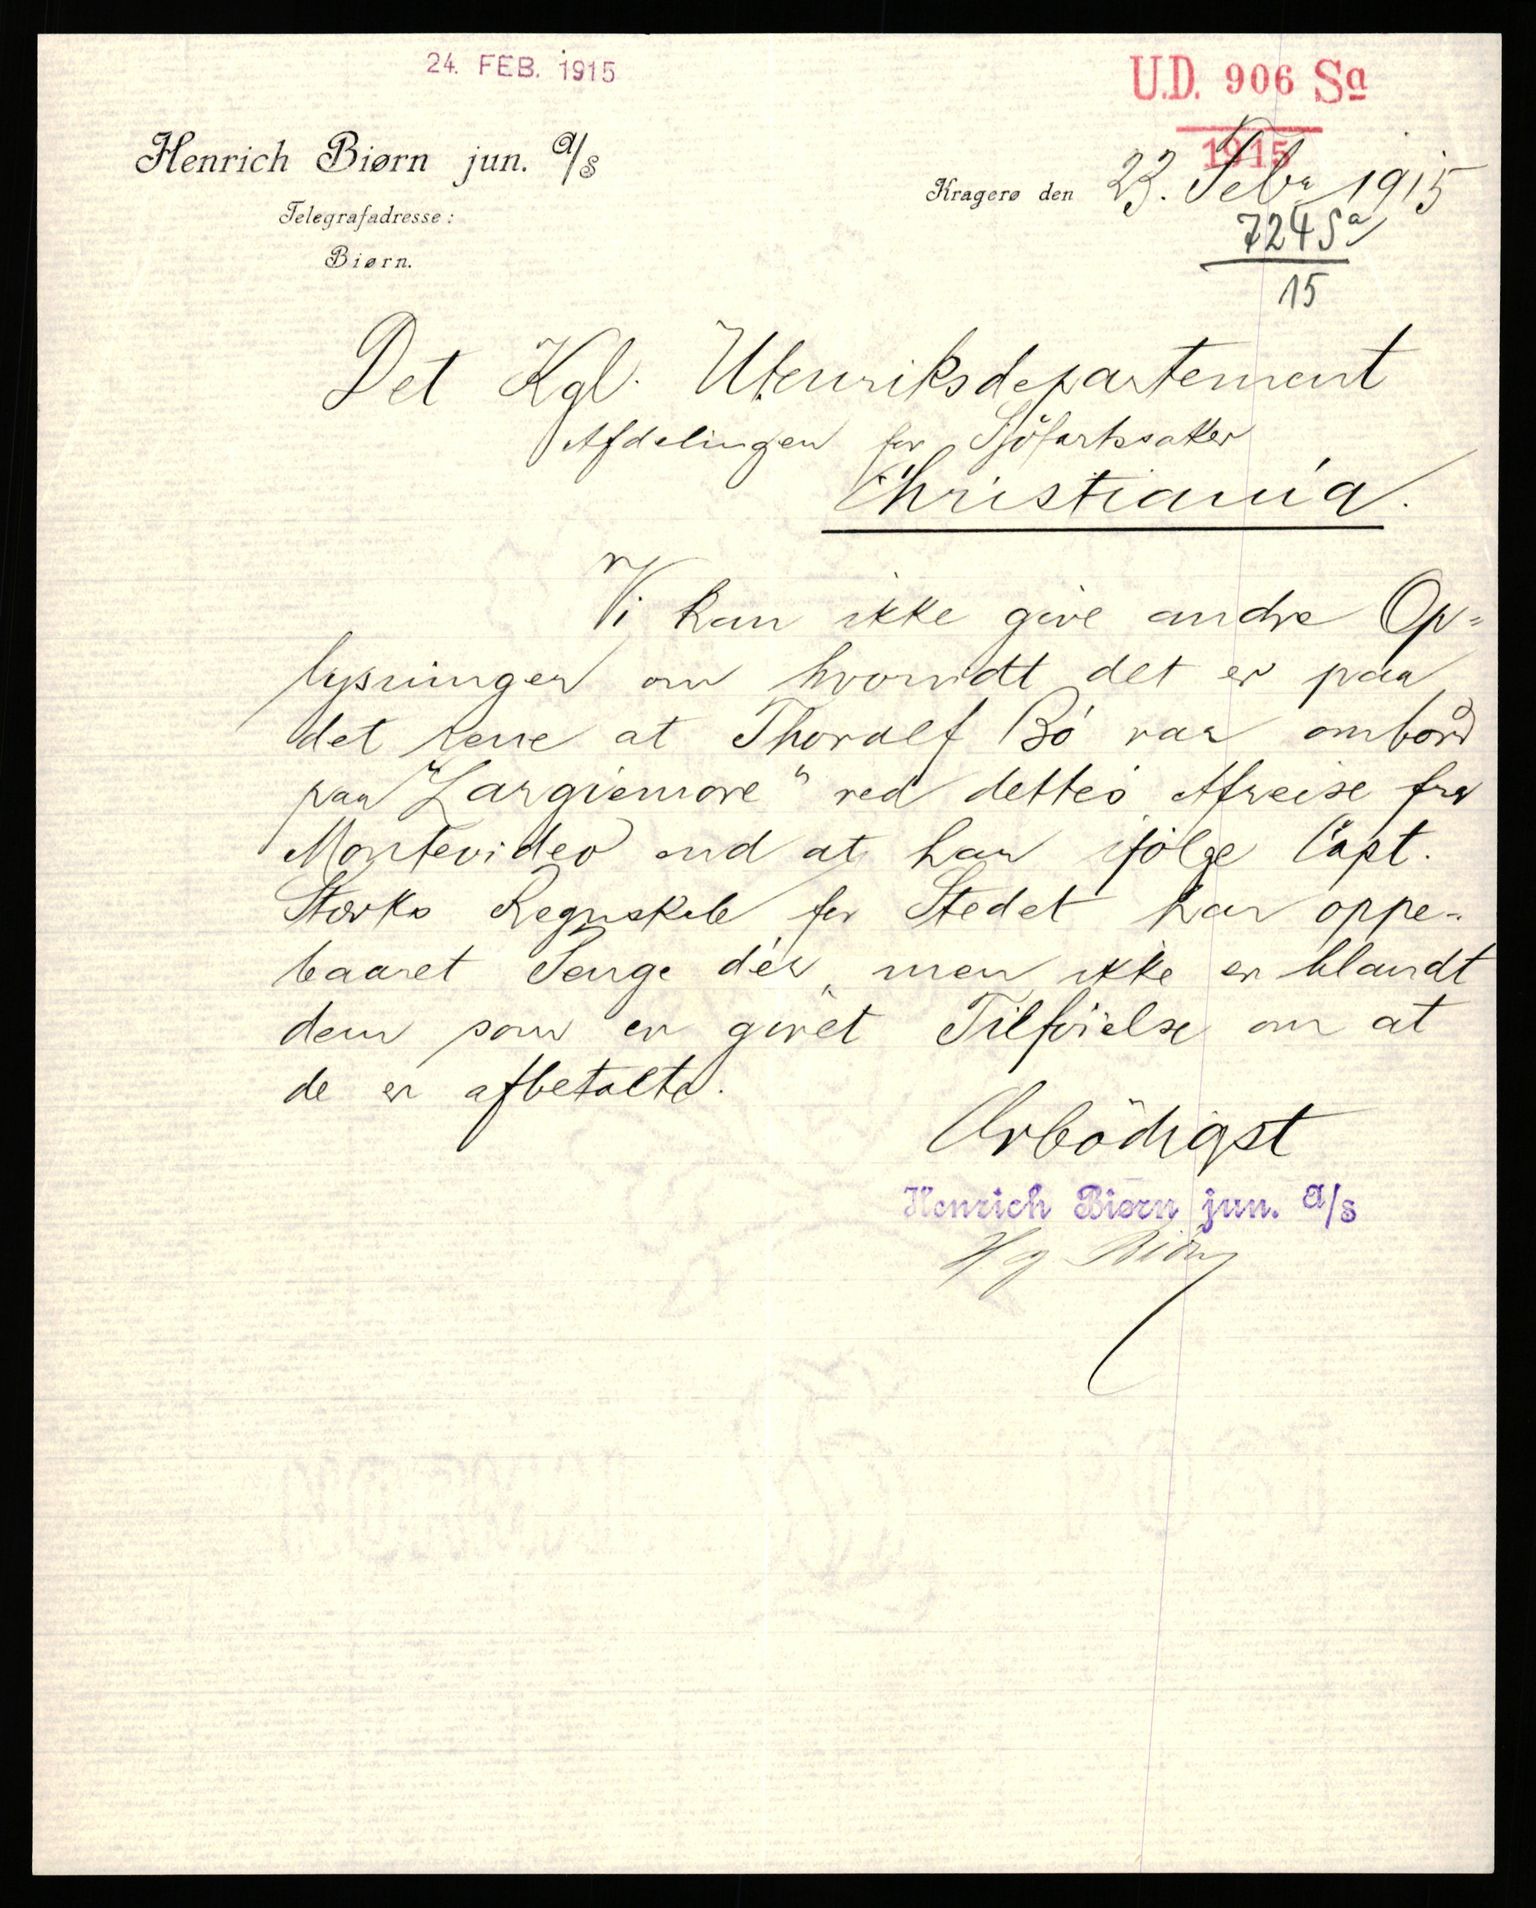 24. FEB. 1915
U.D. 906 Sa
1915
Henrich Biørn jun. A/S
Telegrafadresse:
Biørn.
Kragerø den 23. Febr 1915
724 Sa
15
Det Kgl. Utenriksdepartement
Afdelingen for Sjöfartssaker
Christiania.
Vi kan ikke give andre Op=
lysninger om hvorvidt det er paa
det rene at Thoralf Bö var ombord
paa "Largiemore" ved dettes Afreise fra
Montevideo end at han ifölge Capt.
Störks Regnskab for Stedet har oppe-
baaret Penge dér, men ikke er blandt
dem som er givet Tilföielse om at
de er afbetalte.
Ærbödigst
Henrich Biørn jun. A/S
Hg Biörn